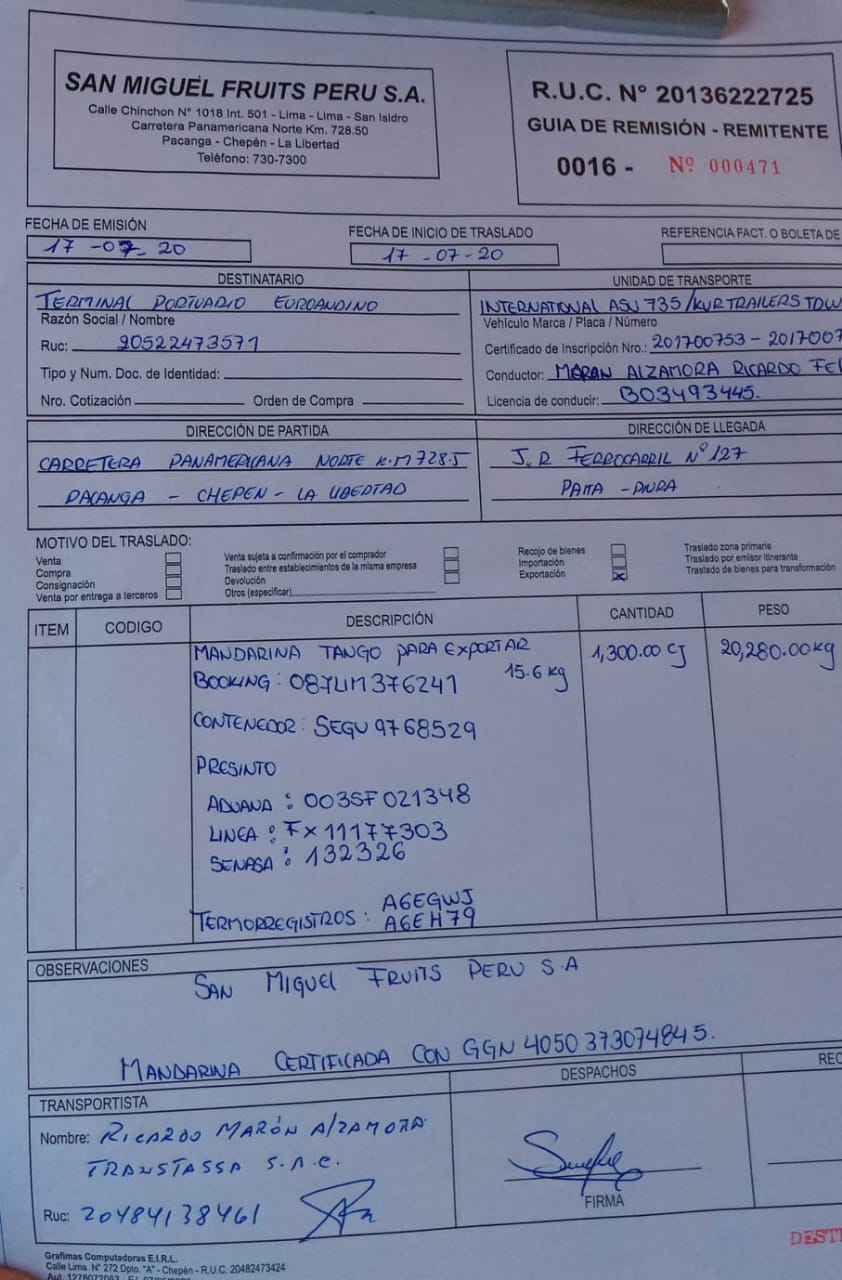 SAN MIGUEL FRUITS PERU S.A.
Calle Chinchon N° 1018 Int. 501 - Lima - Lima - San Isidro
Carretera Panamericana Norte Km. 728.50
Pacanga - Chepén - La Libertad
Teléfono: 730-7300
R.U.C. N° 20136222725
GUIA DE REMISIÓN - REMITENTE
0016 - Nº 000471
FECHA DE EMISIÓN
17 - 07 - 20
FECHA DE INICIO DE TRASLADO
17 - 07 - 20
REFERENCIA FACT. O BOLETA DE
DESTINATARIO
TERMINAL PORTUARIO EUROANDINO
Razón Social / Nombre
Ruc: 20522473571
Tipo y Num. Doc. de Identidad:
Nro. Cotización Orden de Compra
UNIDAD DE TRANSPORTE
INTERNATIONAL ASU 735 / KUR TRAILERS TDW
Vehículo Marca / Placa / Número
Certificado de Inscripción Nro.: 201700753 - 2017007
Conductor: MARAN ALZAMORA RICARDO FEL
Licencia de conducir: B03493445.
DIRECCIÓN DE PARTIDA
CARRETERA PANAMERICANA NORTE K.M 728.5
PACANGA - CHEPEN - LA LIBERTAD
DIRECCIÓN DE LLEGADA
J.R FERROCARRIL Nº 127
PAITA - PIURA
MOTIVO DEL TRASLADO:
Venta
Compra
Consignación
Venta por entrega a terceros
Venta sujeta a confirmación por el comprador
Traslado entre establecimientos de la misma empresa
Devolución
Otros (especificar)
Recojo de bienes
Importación
Exportación X
Traslado zona primaria
Traslado por emisor itinerante
Traslado de bienes para transformación
ITEM CODIGO DESCRIPCIÓN CANTIDAD PESO
MANDARINA TANGO PARA EXPORTAR 1,300.00 CJ 20,280.00 kg
15.6 kg
BOOKING: 087LIM376241
CONTENEDOR: SEGU 9768529
PRESINTO
ADUANA : 003SF021348
LINEA : FX11177303
SENASA : 132326
TERMORREGISTROS : A6EGWJ
A6EH79
OBSERVACIONES
SAN MIGUEL FRUITS PERU S.A
MANDARINA CERTIFICADA CON GGN 4050373074845.
TRANSPORTISTA
Nombre: RICARDO MARÓN AlZAMORA
TRANSTASSA S.A.C.
Ruc: 20484138461
DESPACHOS
FIRMA
REC
DESTI
Grafimas Computadoras E.I.R.L.
Calle Lima N° 272 Dpto. "A" - Chepén - R.U.C. 20482473424